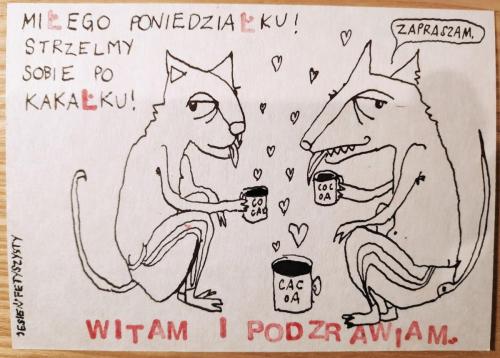 MIŁEGO PONIEDZIAŁKU!
STRZELMY
SOBIE PO
KAKAŁKU!
ZAPRASZAM.
CO
CAO
COC
OA
CAC
OA
WITAM I PODZRAWIAM.
JESIEŃ FETYSZYSTY